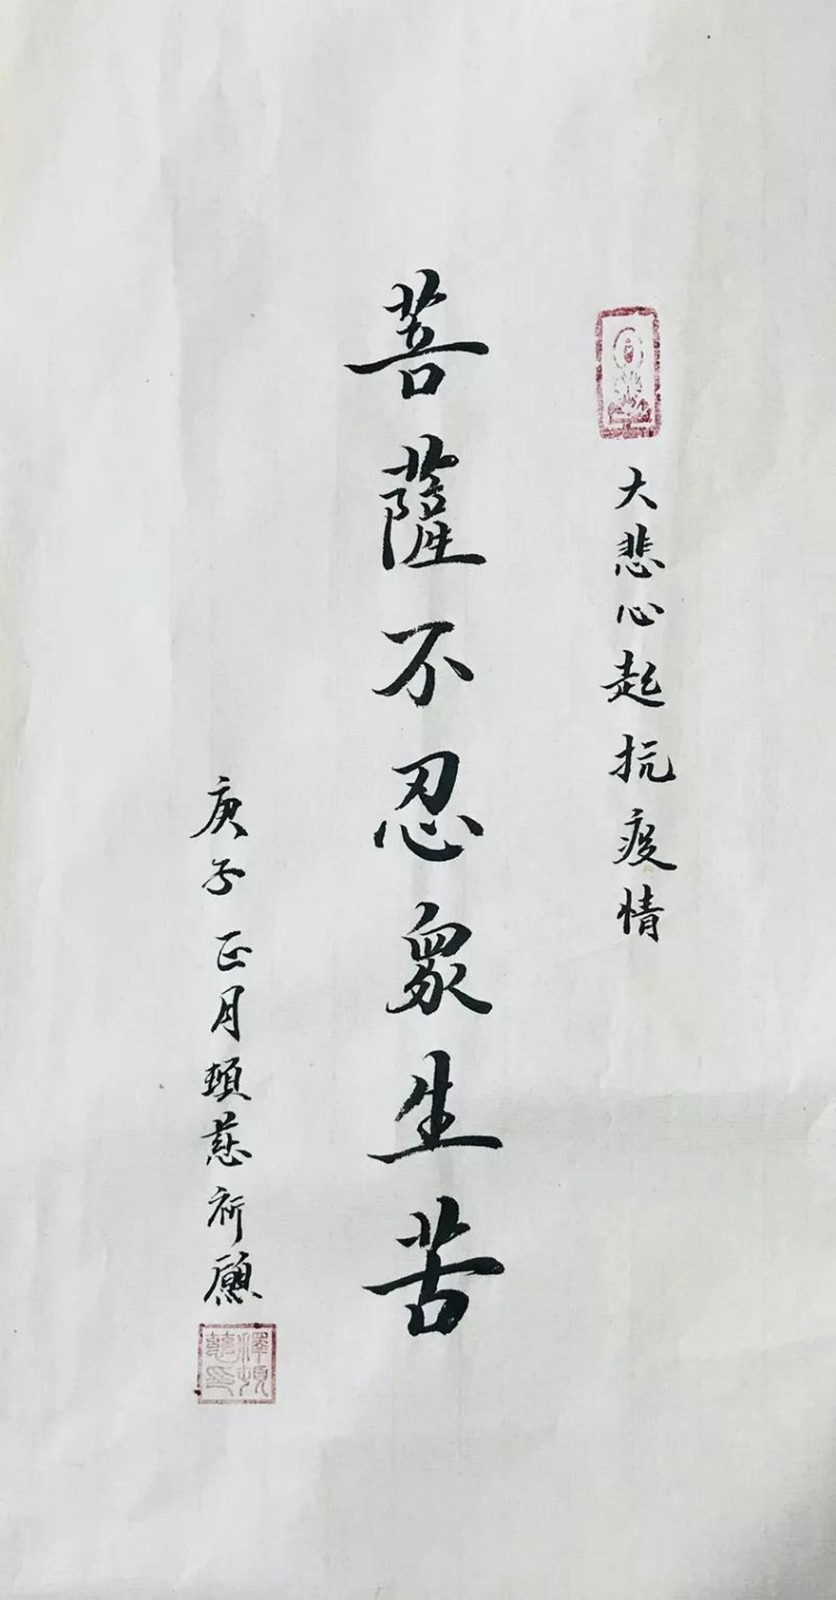 大悲心起抗疫情
菩薩不忍眾生苦
庚子正月頓慈祈願
釋頓慈印